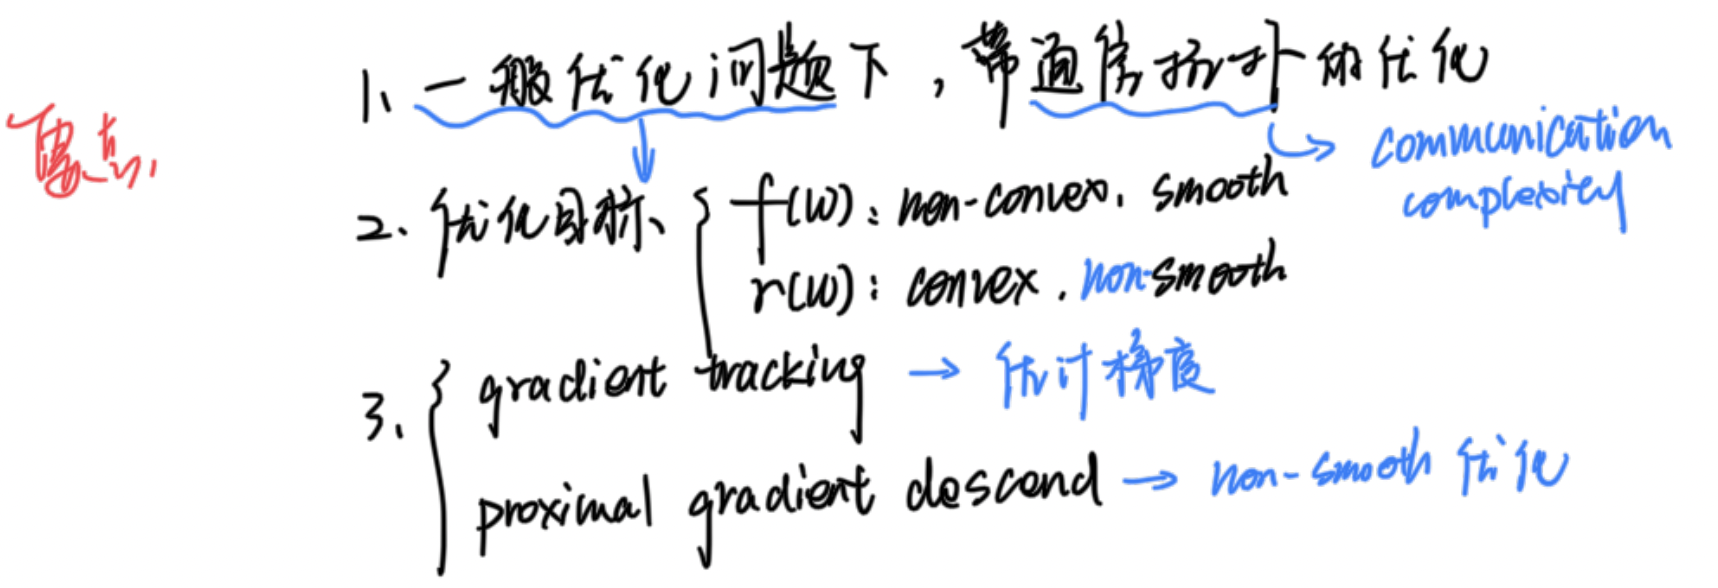 要点:
1、一般优化问题下，带通信拓扑的优化
communication
complexity
2、优化目标、{ f(w): non-convex, smooth
r(w): convex, non-smooth
3、{ gradient tracking → 估计梯度
proximal gradient descend → non-smooth 优化